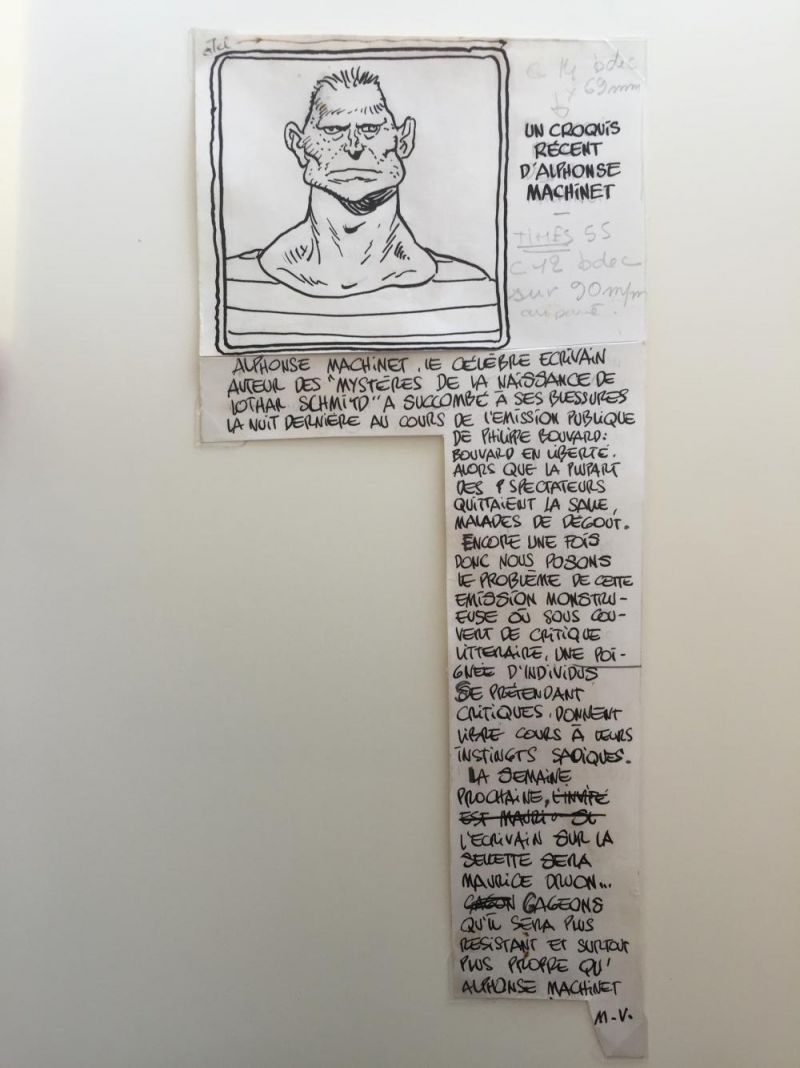 atel
C 14 bdec
69mm
UN CROQUIS
RÉCENT
D'ALPHONSE
MACHINET
TIMES 55
C 12 bdec
sur 90 m/m
ALPHONSE MACHINET, LE CÉLÈBRE ECRIVAIN
AUTEUR DES "MYSTÈRES DE LA NAISSANCE DE
LOTHAR SCHMITD" A SUCCOMBÉ À SES BLESSURES
LA NUIT DERNIÈRE AU COURS DE L'EMISSION PUBLIQUE
DE PHILIPPE BOUVARD:
BOUVARD EN LIBERTÉ.
ALORS QUE LA PLUPART
DES SPECTATEURS
QUITTAIENT LA SALLE,
MALADES DE DÉGOUT.
ENCORE UNE FOIS
DONC NOUS POSONS
LE PROBLÈME DE CETTE
EMISSION MONSTRU-
EUSE OÙ SOUS COU-
VERT DE CRITIQUE
LITTERAIRE, UNE POI-
GNÉE D'INDIVIDUS
SE PRÉTENDANT
CRITIQUES, DONNENT
LIBRE COURS À LEURS
INSTINCTS SADIQUES.
LA SEMAINE
PROCHAINE, L'INVITÉ
EST
L'ECRIVAIN SUR LA
SELLETTE SERA
MAURICE DRUON...
GAGEONS
QU'IL SERA PLUS
RESISTANT ET SURTOUT
PLUS PROPRE QU'
ALPHONSE MACHINET
M-V.